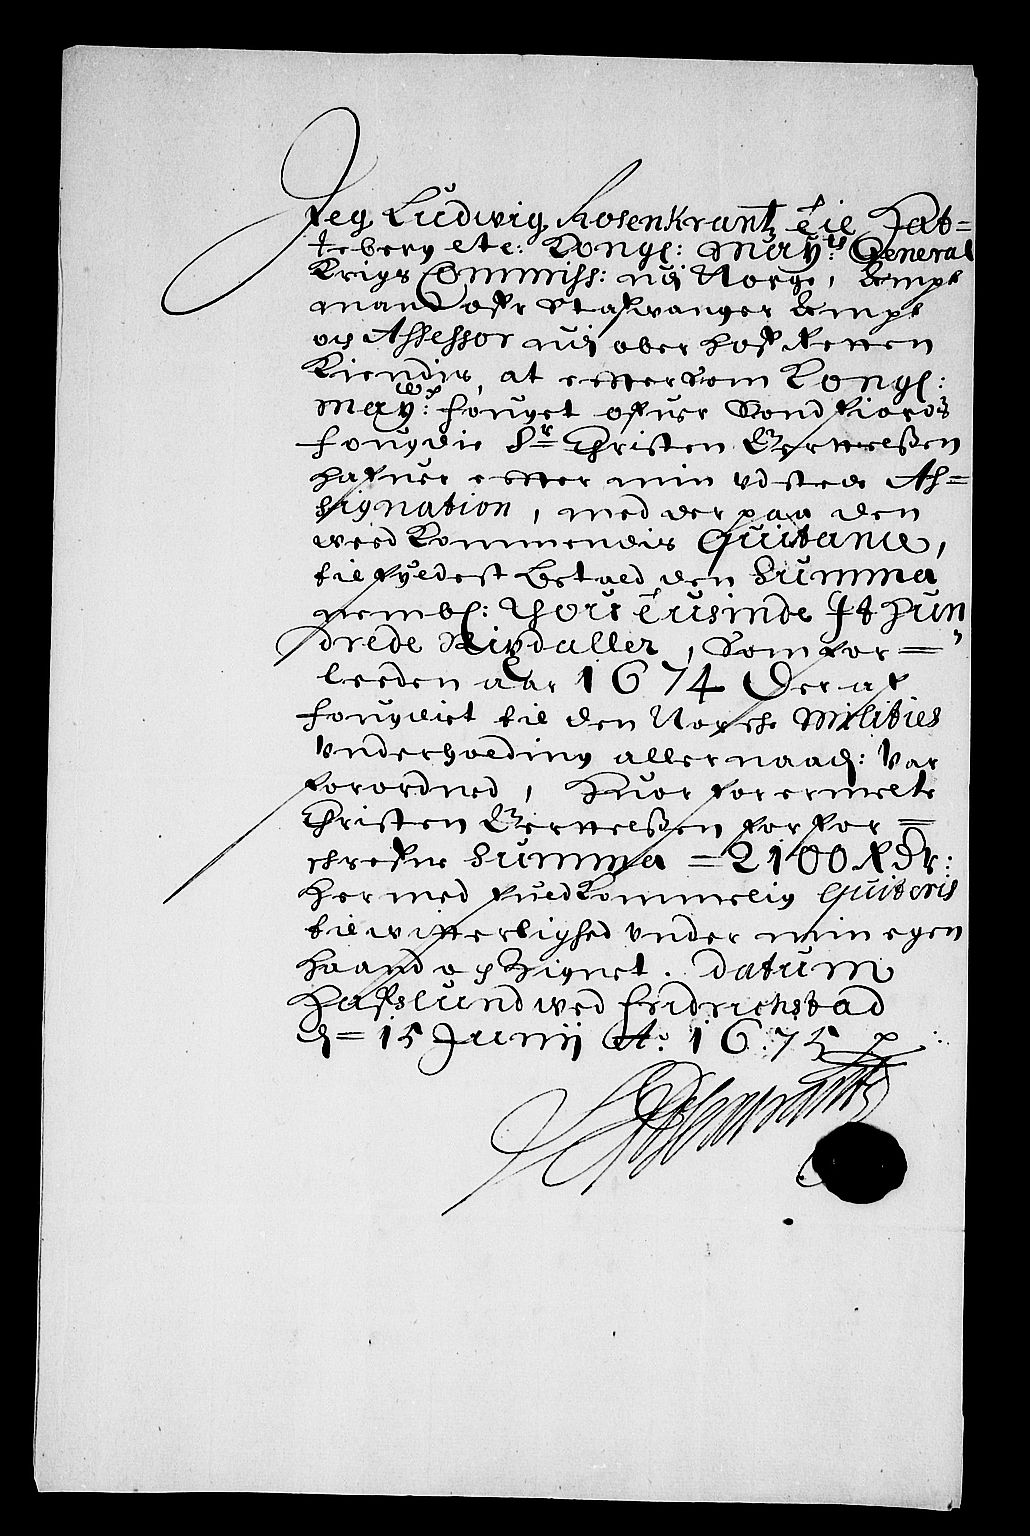 Jeg Ludwig Rosenkrantz til Hat=
teberg etc: Kongl: May:ts General
Krigs Commiss: udj Norge, Ampt
mand ofr Stafwanger Ampt
og Assessor udj ober hoff Retten
Kiendis, at effttersom Kongl:
May:ts fouget ofuer Sondfiords
fougdie Sr Christen Berttelßen
hafuer effter min udstede As=
signation, med der paa den
wed Kommendis Quitanie,
til fyldest betald den Summa
nembl: Thou tusinde It Hun
drede Rixdaller, Som for=
leeden aar 1674 Der af
fougdiet til den Norske Milities
Underholding allernaad: Var
forordned, Huor for ermelte
Christen Berttelßen for for=
schrefne Summa =2100 Rdr:
her med fuldkommelig Quiteris
til witterlighed under min egen
haand og Zignet. Datum
Hafslund wed Fridrichstad
d= 15 Junij Ao: 1675
LRosenkrantz